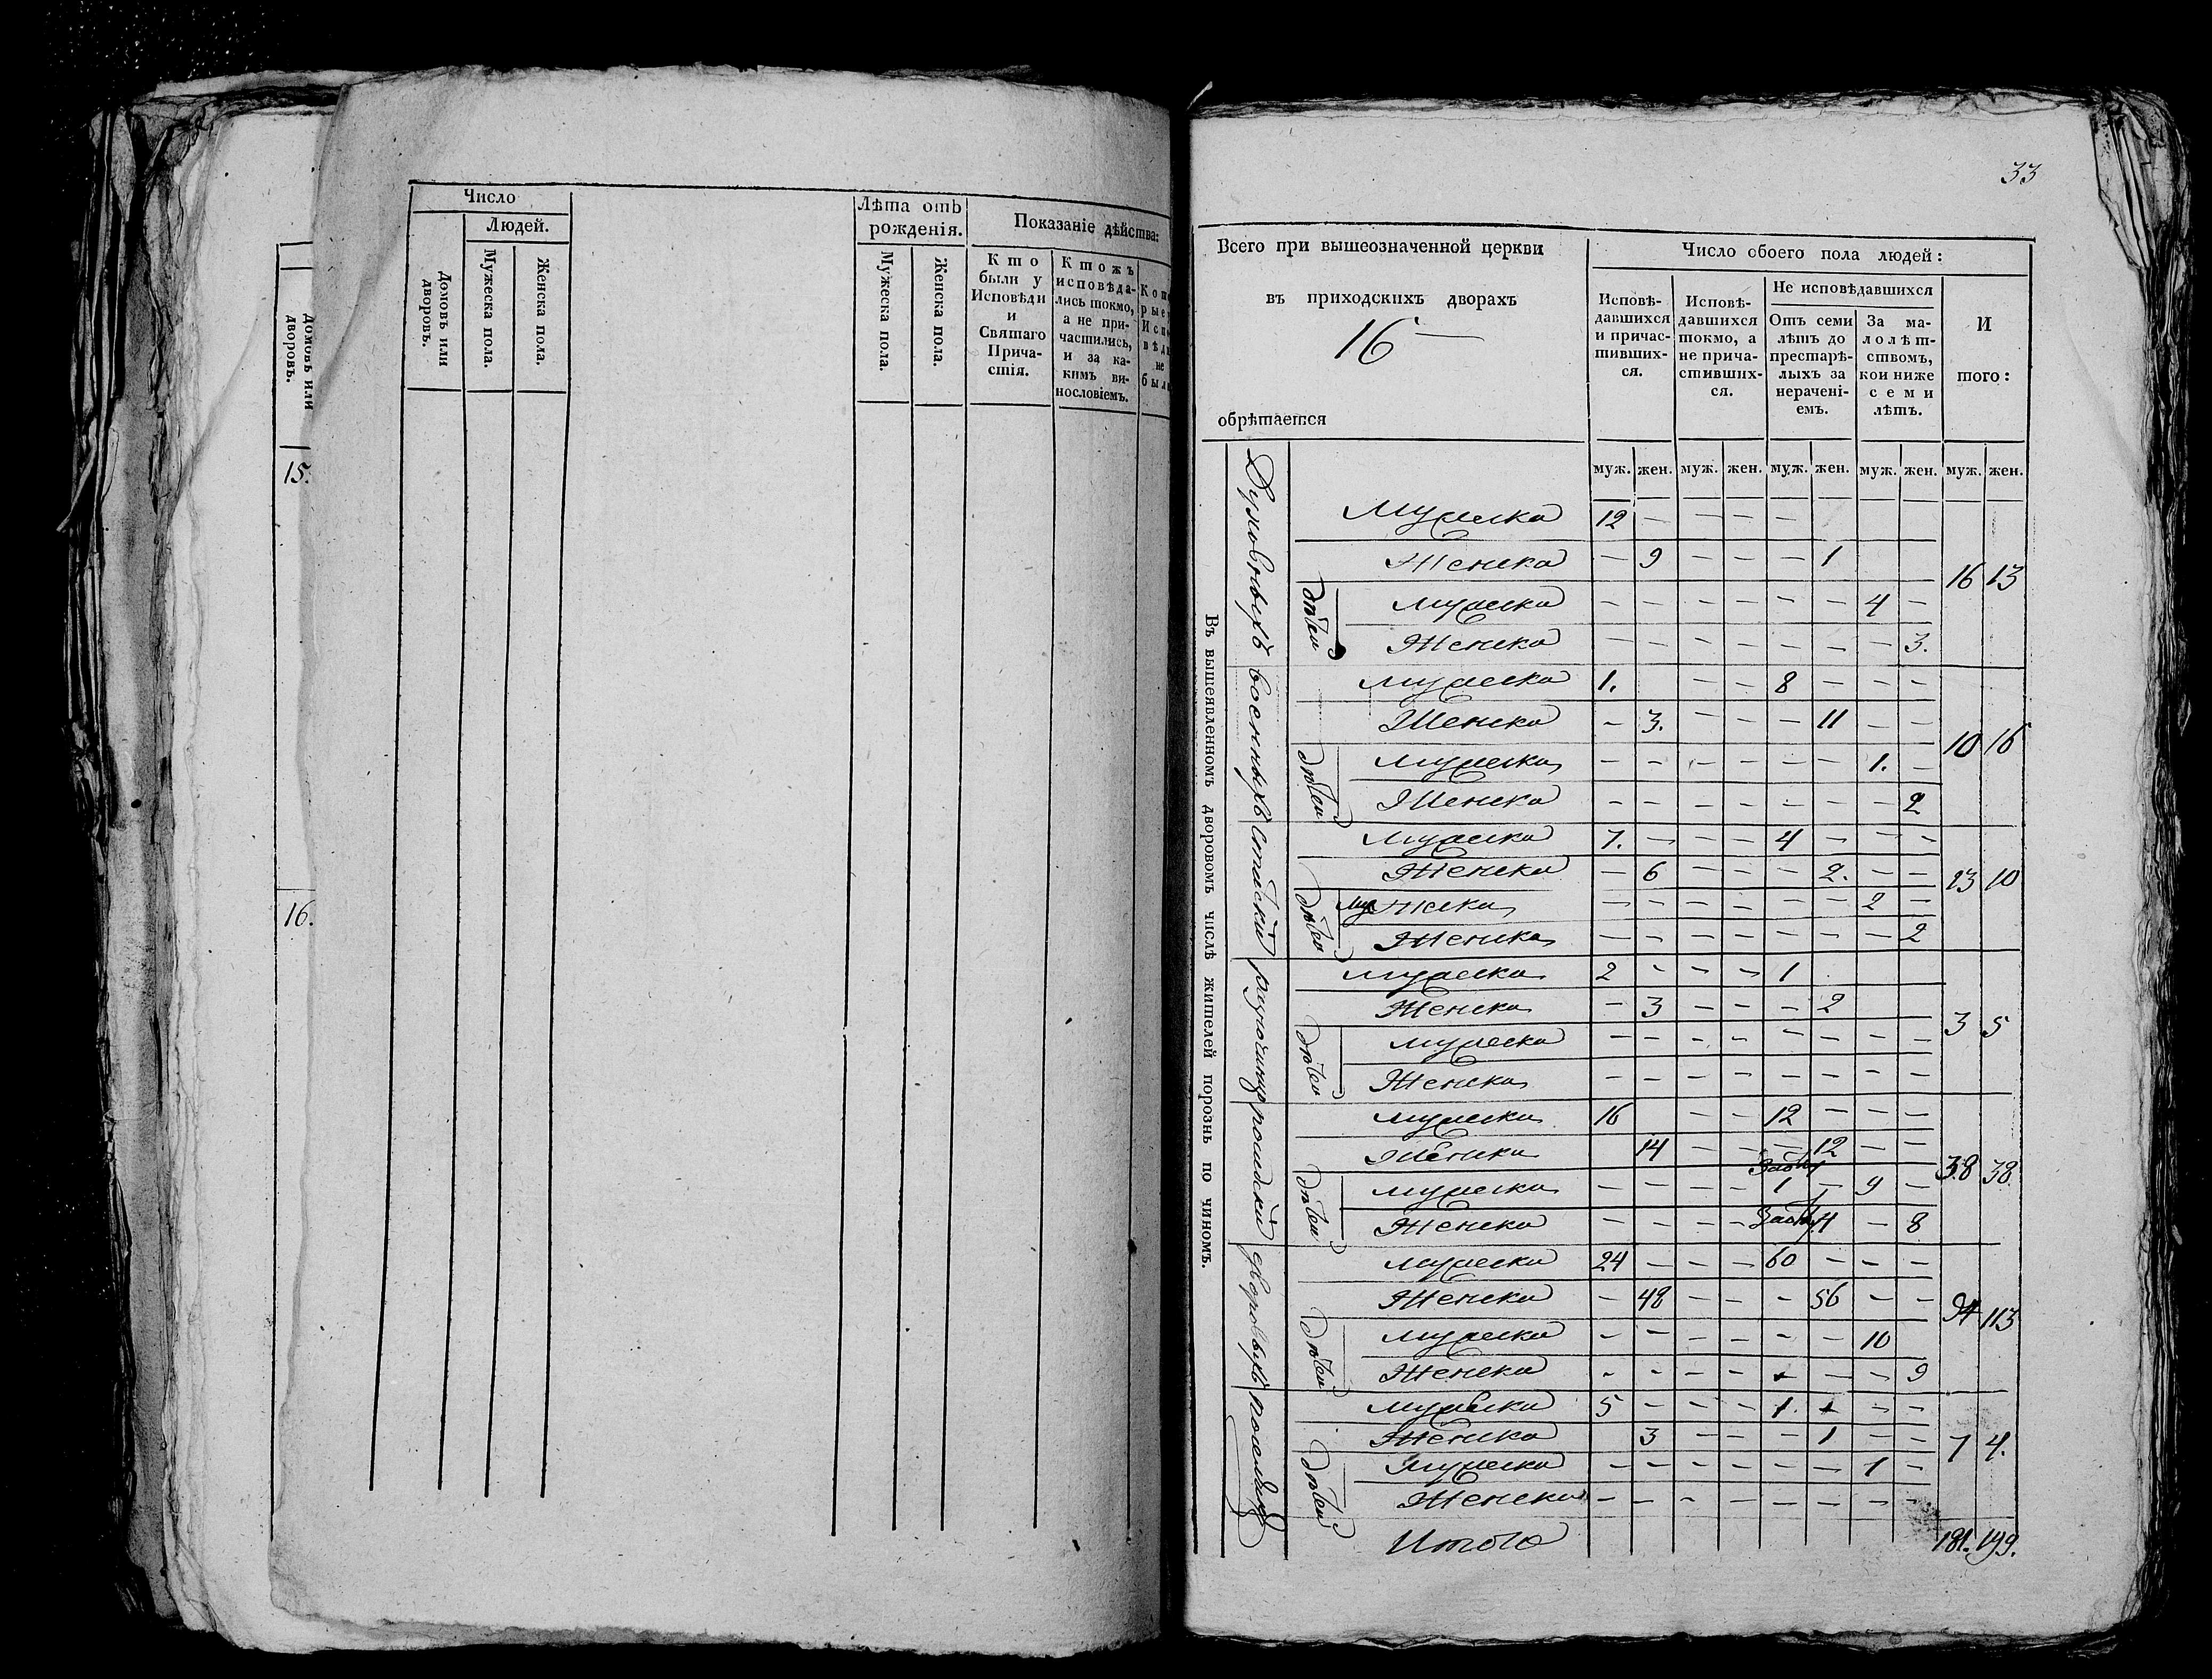 Домовъ или дворовъ.
15.
16.
Число
Людей.
Домовъ или дворовъ.
Мужеска пола.
Женска пола.
Лѣта отъ
рожденія.
Мужеска пола.
Женска пола.
Показаніе дѣйства:
Кто
были у
Исповѣди
и
Святаго
Прича-
стія.
Ктожъ
исповѣда-
лись токмо,
а не при-
частились,
и за ка-
кимъ ви-
нословіемъ.
Кото
рые
Исп
вѣд
не
был
33
Всего при вышеозначенной церкви
въ приходскихъ дворахъ
16 —
обрѣтается
Число обоего пола людей:
Исповѣ-
давшихся
и причас-
тивших-
ся.
Исповѣ-
давшихся
токмо, а
не прича-
стивших-
ся.
Не исповѣдавшихся
Отъ семи
лѣтъ до
престарѣ-
лыхъ за
нерачені-
емъ.
За ма-
лолѣт-
ствомъ,
кои ниже
семи
лѣтъ.
И
того:
муж. жен. муж. жен. муж. жен. муж. жен. муж. жен.
Въ вышеявленномъ дворовомъ числѣ жителей порознь по чиномъ.
Духовныхъ
Мужеска 12 — — — —
Женска — 9 — — — 1
дѣтей
Мужеска — — — — — — 4 —
Женска — — — — — — — 3.
16 13
военныхъ
Мужеска 1. — — 8 — — —
Женска — 3. — — — 11 — —
дѣтей
Мужеска — — — — — — 1. —
Женска — — — — — — — 2
10 16
Статски
Мужеска 7. — — — 4 — — —
Женска — 6 — — — 2. — —
дѣтей
Мужеска — — — — — — 2 —
Женска — — — — — — — 2
13 10
Мужеска 2 — — — 1
Женска — 3 — — — 2
дѣтей
Мужеска — — — — — — — —
Женска — — — — — — — —
3 5
Мужеска 16 — — 12 — — —
Женска 14 — — — 12 — —
дѣтей
Мужеска — — — — 1 — 9 —
Женска — — — — 4 — 8
38 38
дворовыхъ
Мужеска 24 — — — 60 — — —
Женска — 48 — — — 56 — —
дѣтей
Мужеска — — — — — — 10
Женска — — — — — — — 9
94 113
Мужеска 5 — — — 1. — — —
Женска 3 — — — 1 — —
дѣтей
Мужеска — — — — — — 1 —
Женска — — — — — — — —
7 4.
Итого 181. 199.